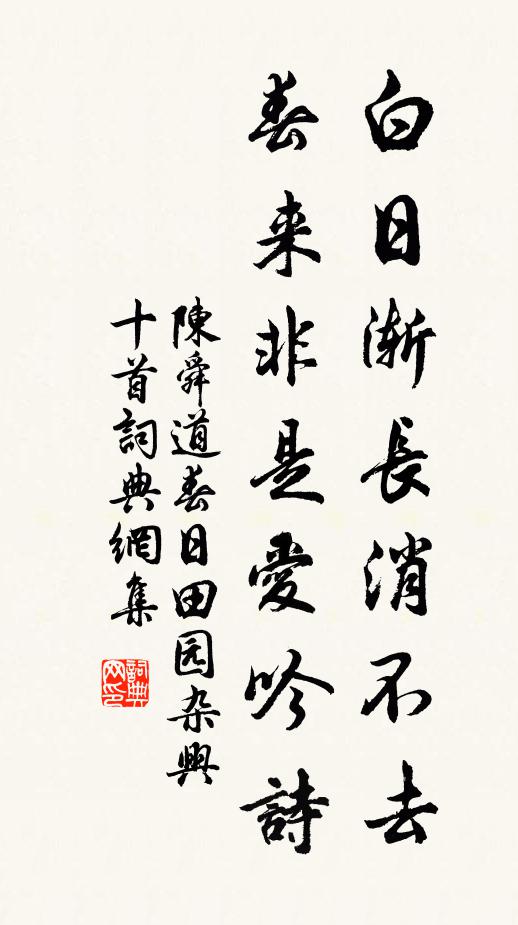 白日渐長消不去
春来非是愛吟詩
陳舜道春日田园杂興
十首詞典網集
詞典
网印